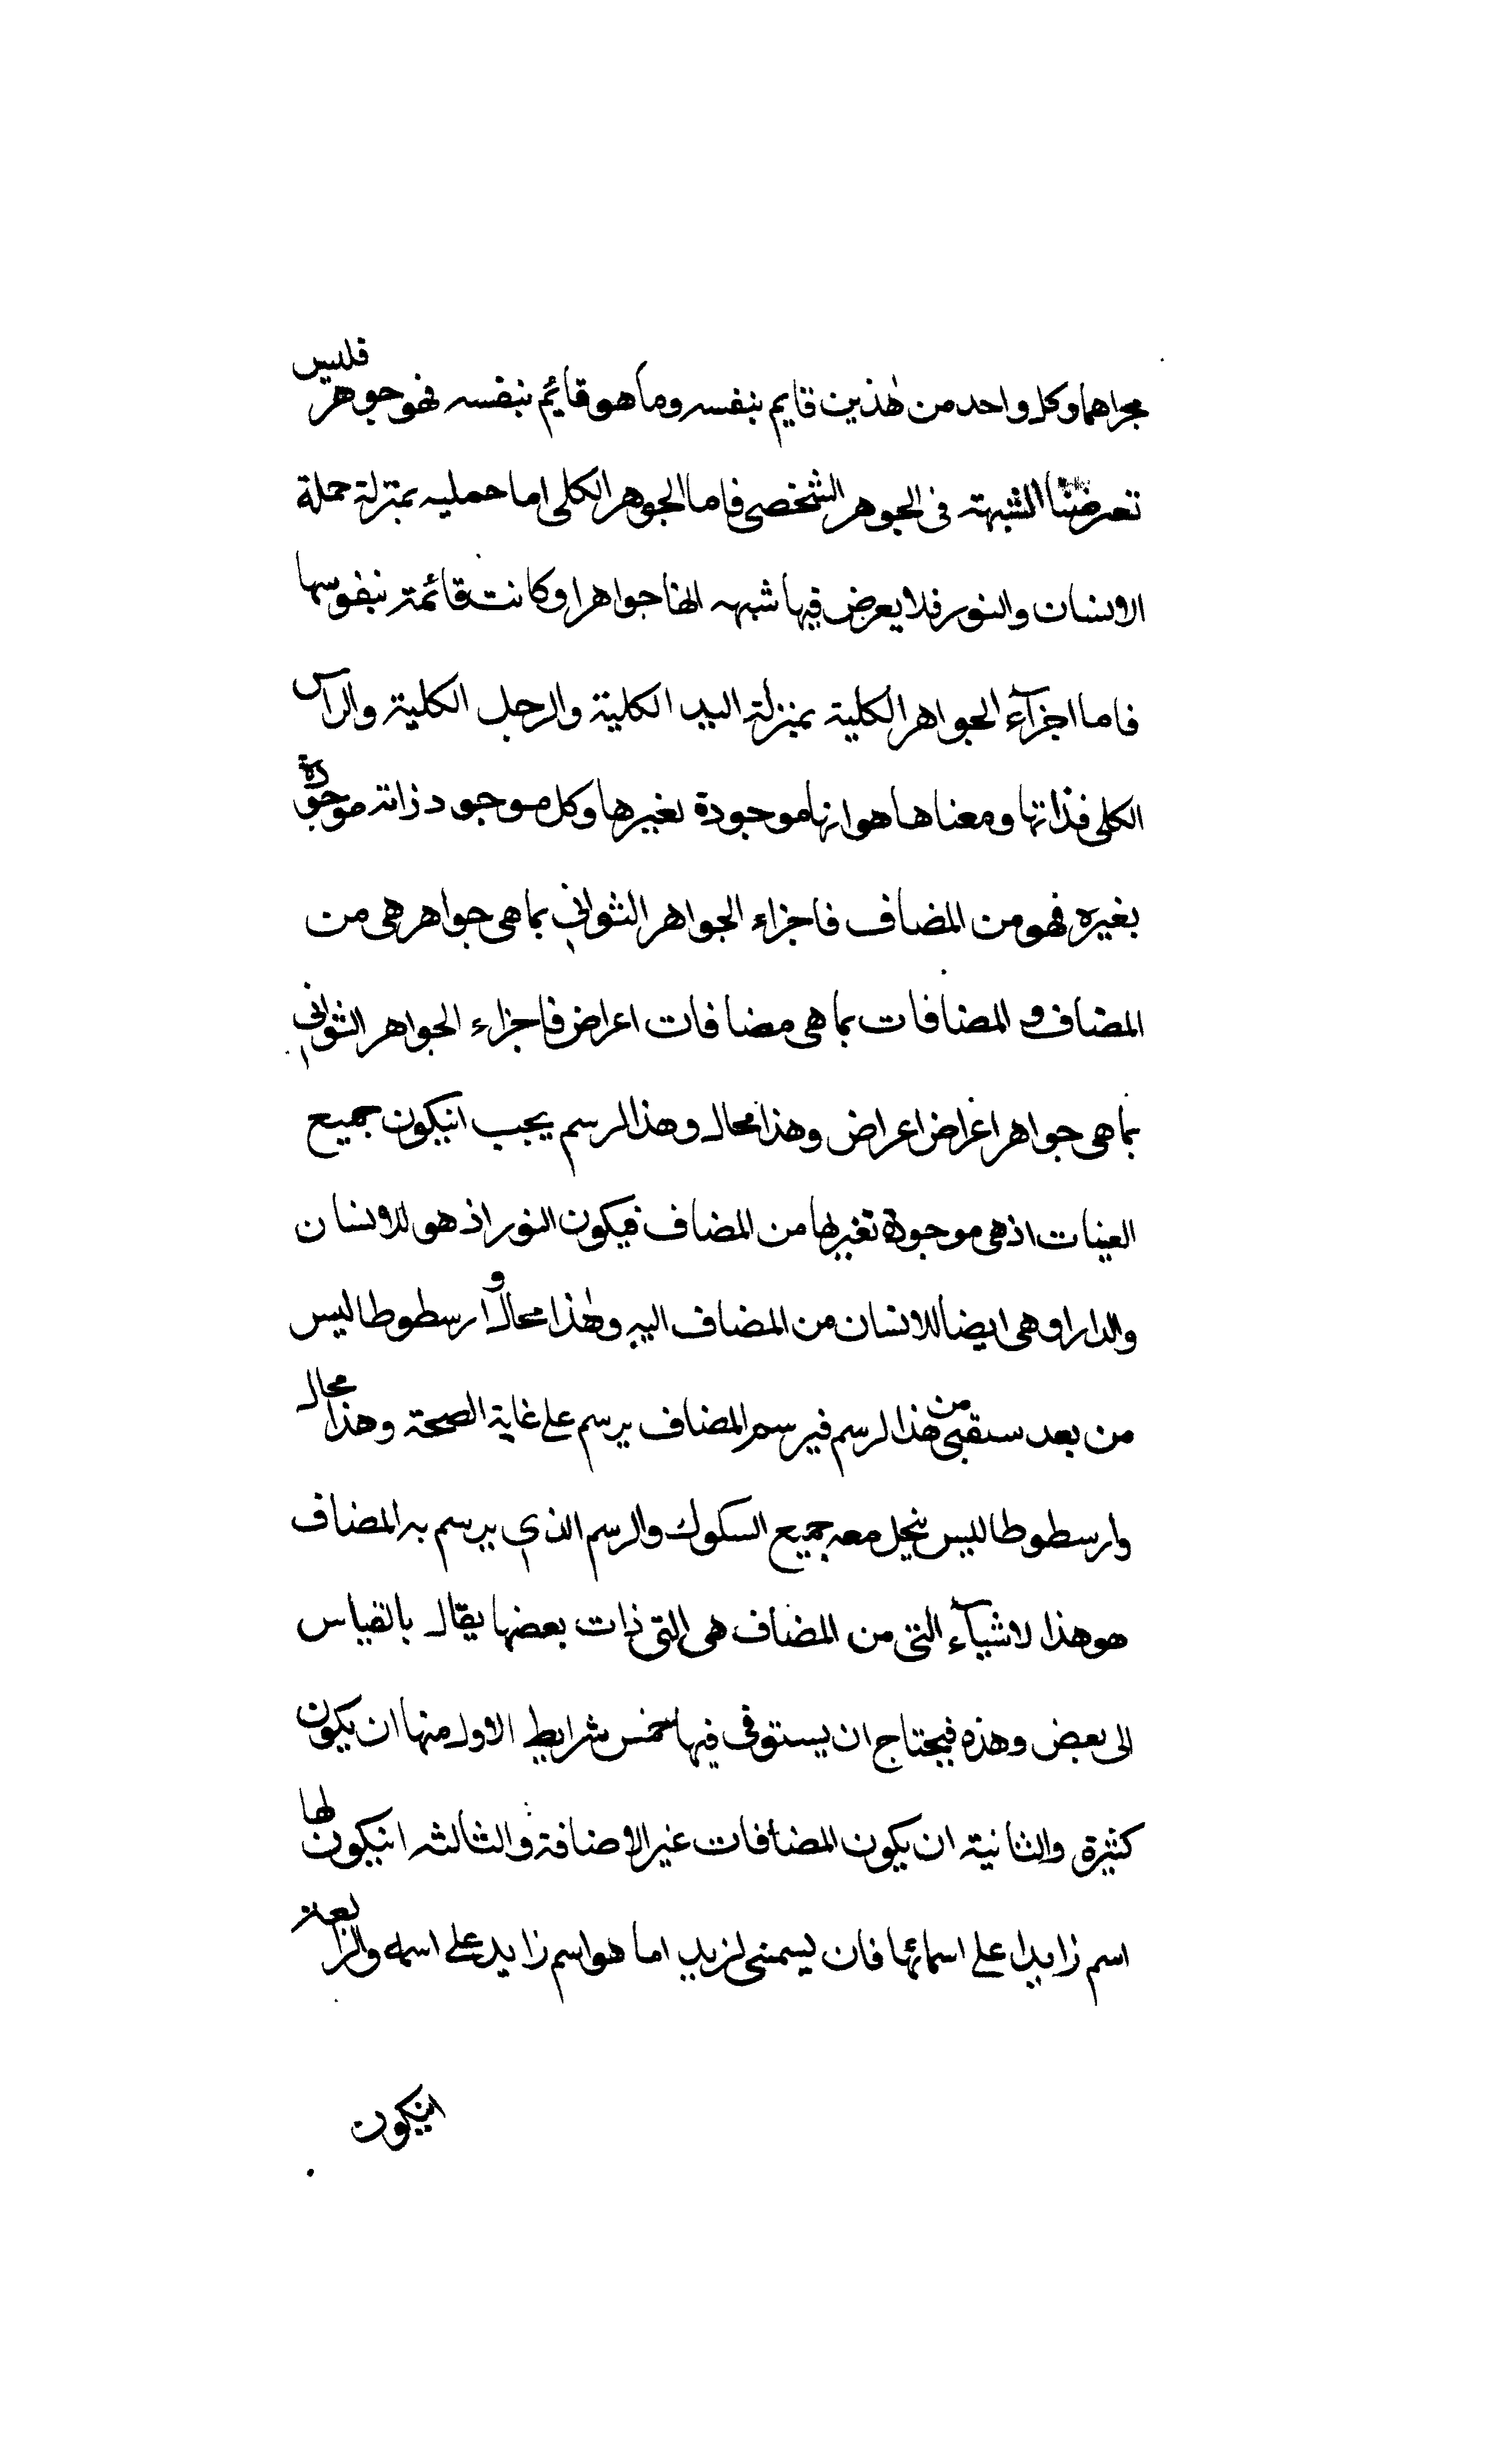 مجراهما وكل واحد من هٰذين قايم بنفسه وما هو قائم بنفسه فهو جوهر فليس
تعرضنا الشبهة فى الجوهر الشخصى فاما الجوهر الكلى اما حمليه بمنزلة حملة
الانسان والنور فلا يعرض فيها شبهه انها جواهر او كانت قائمة بنفوسها
فاما اجزآء الجواهر الكلية بمنزلة اليد الكلية والرجل الكلية والراس
الكلى فذاتها ومعناها هو انها موجودة لغيرها وكل موجود ذاته موجودة
بغيره فهو من المضاف فاجزاء الجواهر الثوانى بما هى جواهر هى من
المضاف و المضافات بما هى مضافات اعراض فاجزاء الجواهر الثوانى
بما هى جواهر اغراض اعراض وهذا محال وهذا الرسم يجب انيكون جميع
العينات اذ هى موجودة لغيرها من المضاف فيكون النور اذ هو للانسان
والدار او هى ايضا للانسان من المضاف اليه وهٰذا محال و ارسطوطاليس
من بعد ستقبى من هذا الرسم فيرسم المضاف برسم على غاية الصحة وهذا محال
وارسطوطاليس ينحل معه جميع السكوك والرسم الذى يرسم به المضاف
هو هذا لاشيآء التى من المضاف هى التى ذات بعضها يقال بالقياس
الى بعض وهذه فيحتاج ان يستوفى فيها خمس شرايط الاول منها ان يكون
كثيرة والثانية ان يكون المضافات غير الاضافة والثالثه انيكون لها
اسم زايدا على اسمائها فان ليسمنى لزيد اما هو اسم زايد على اسمه والرابعة
انيكون